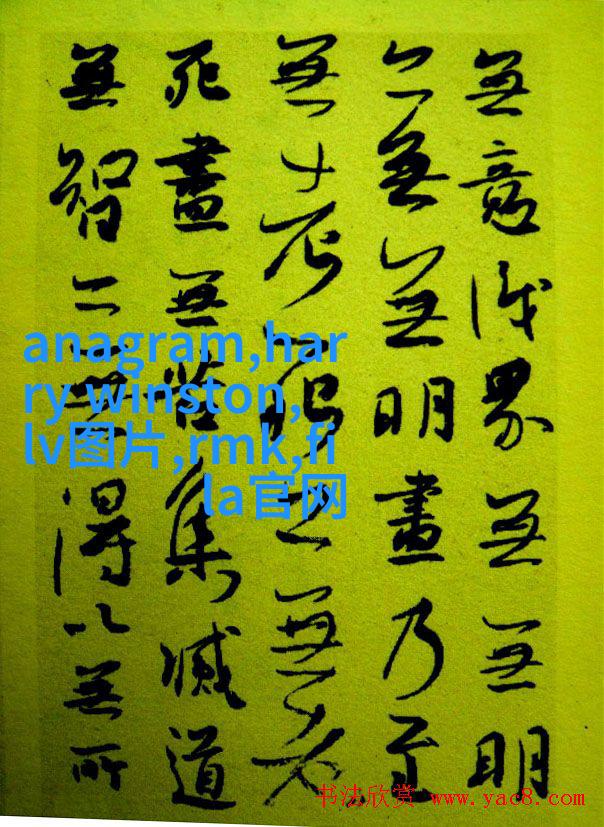 無意識界無無明
亦無無明盡乃至
無老死亦無老
死盡無苦集滅道
無智亦無得以無所
anagram,har
ry winston,
lv图片,rmk,fi
la官网
书法欣赏 www.yac8.com